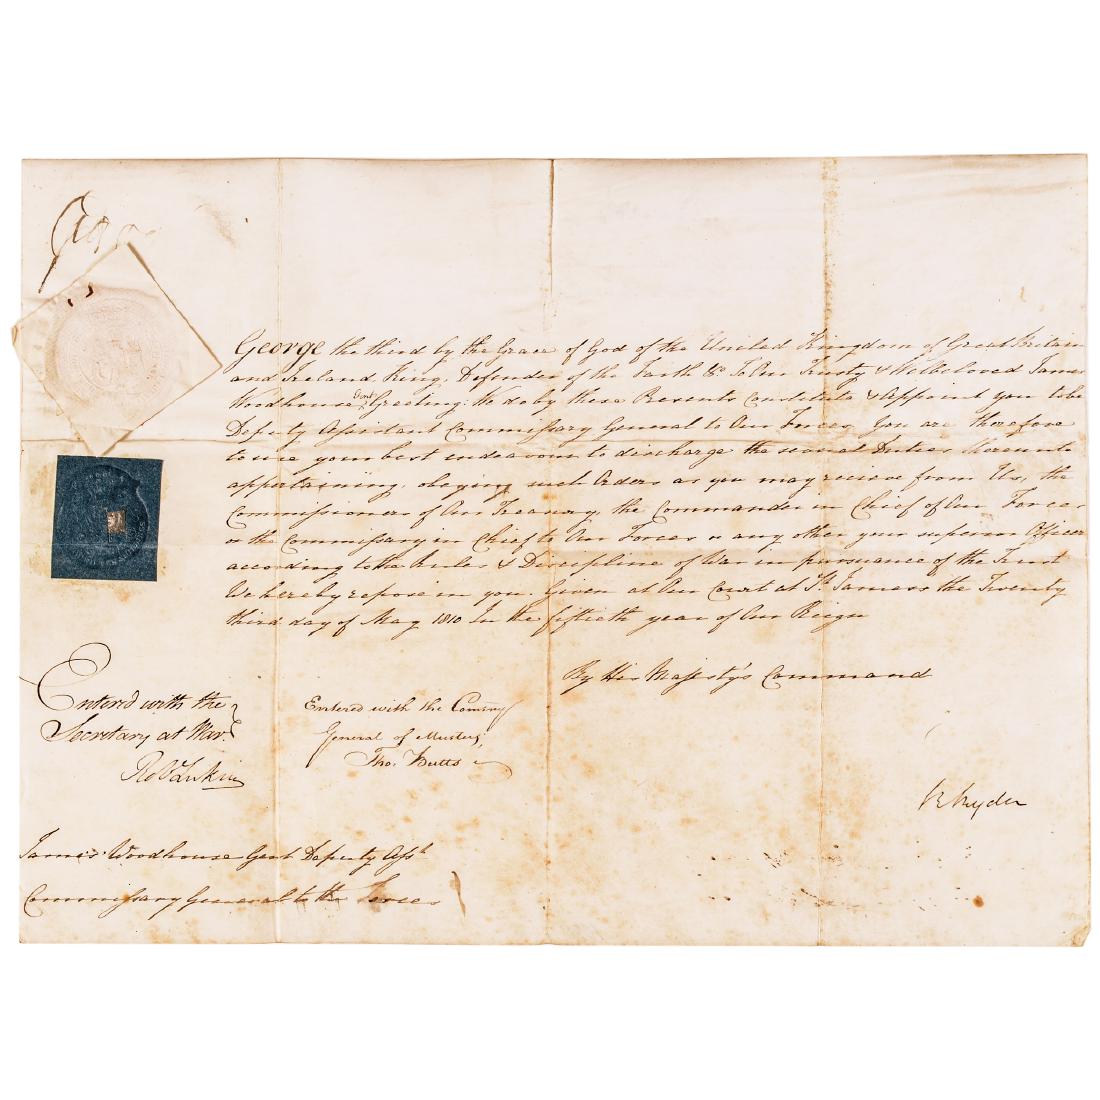 George the third by the Grace of God of the United Kingdom of Great Britain
and Ireland King, Defender of the Faith &c. To Our Trusty & Wellbeloved James
Woodhouse Gent. Greeting: We do by these Presents constitute & Appoint you to be
Deputy Assistant Commissary General to Our Forces You are therefore
to use your best endeavours to discharge the several Duties thereunto
appertaining, obeying such Orders as you may recieve from Us, the
Commissioners of Our Treasury, the Commander in Chief of Our Forces
or the Commissary in Chief to Our Forces or any other your superior Officer
according to the Rules & Discipline of War in pursuance of the Trust
We hereby repose in you. Given at Our Court at St. James's the Twenty
third day of May 1810 In the fiftieth year of Our Reign
By His Majesty's Command
Entered with the
Secretary at War.
Entered with the Commy
General of Musters,
Tho. Butts
R Ryder
James Woodhouse Gent Deputy Asst.
Commissary General to the Forces